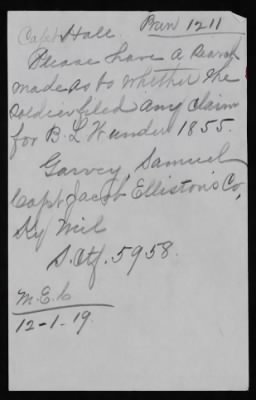 Capt Hall. Prin 1211
Please have a search
made as to whether the
soldier filed any claim
for B. L. W under 1855.
Garvey, Samuel
Capt Jacob Elliston's Co,
Ky Mil
S. Ctf. 5958.
M.E.C
12-1-19.